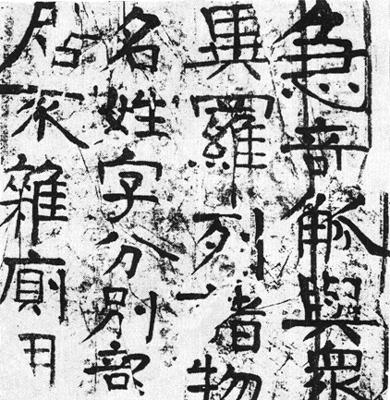 急奇觚與衆
異羅列諸物
名姓字分別部
居不雜廁用